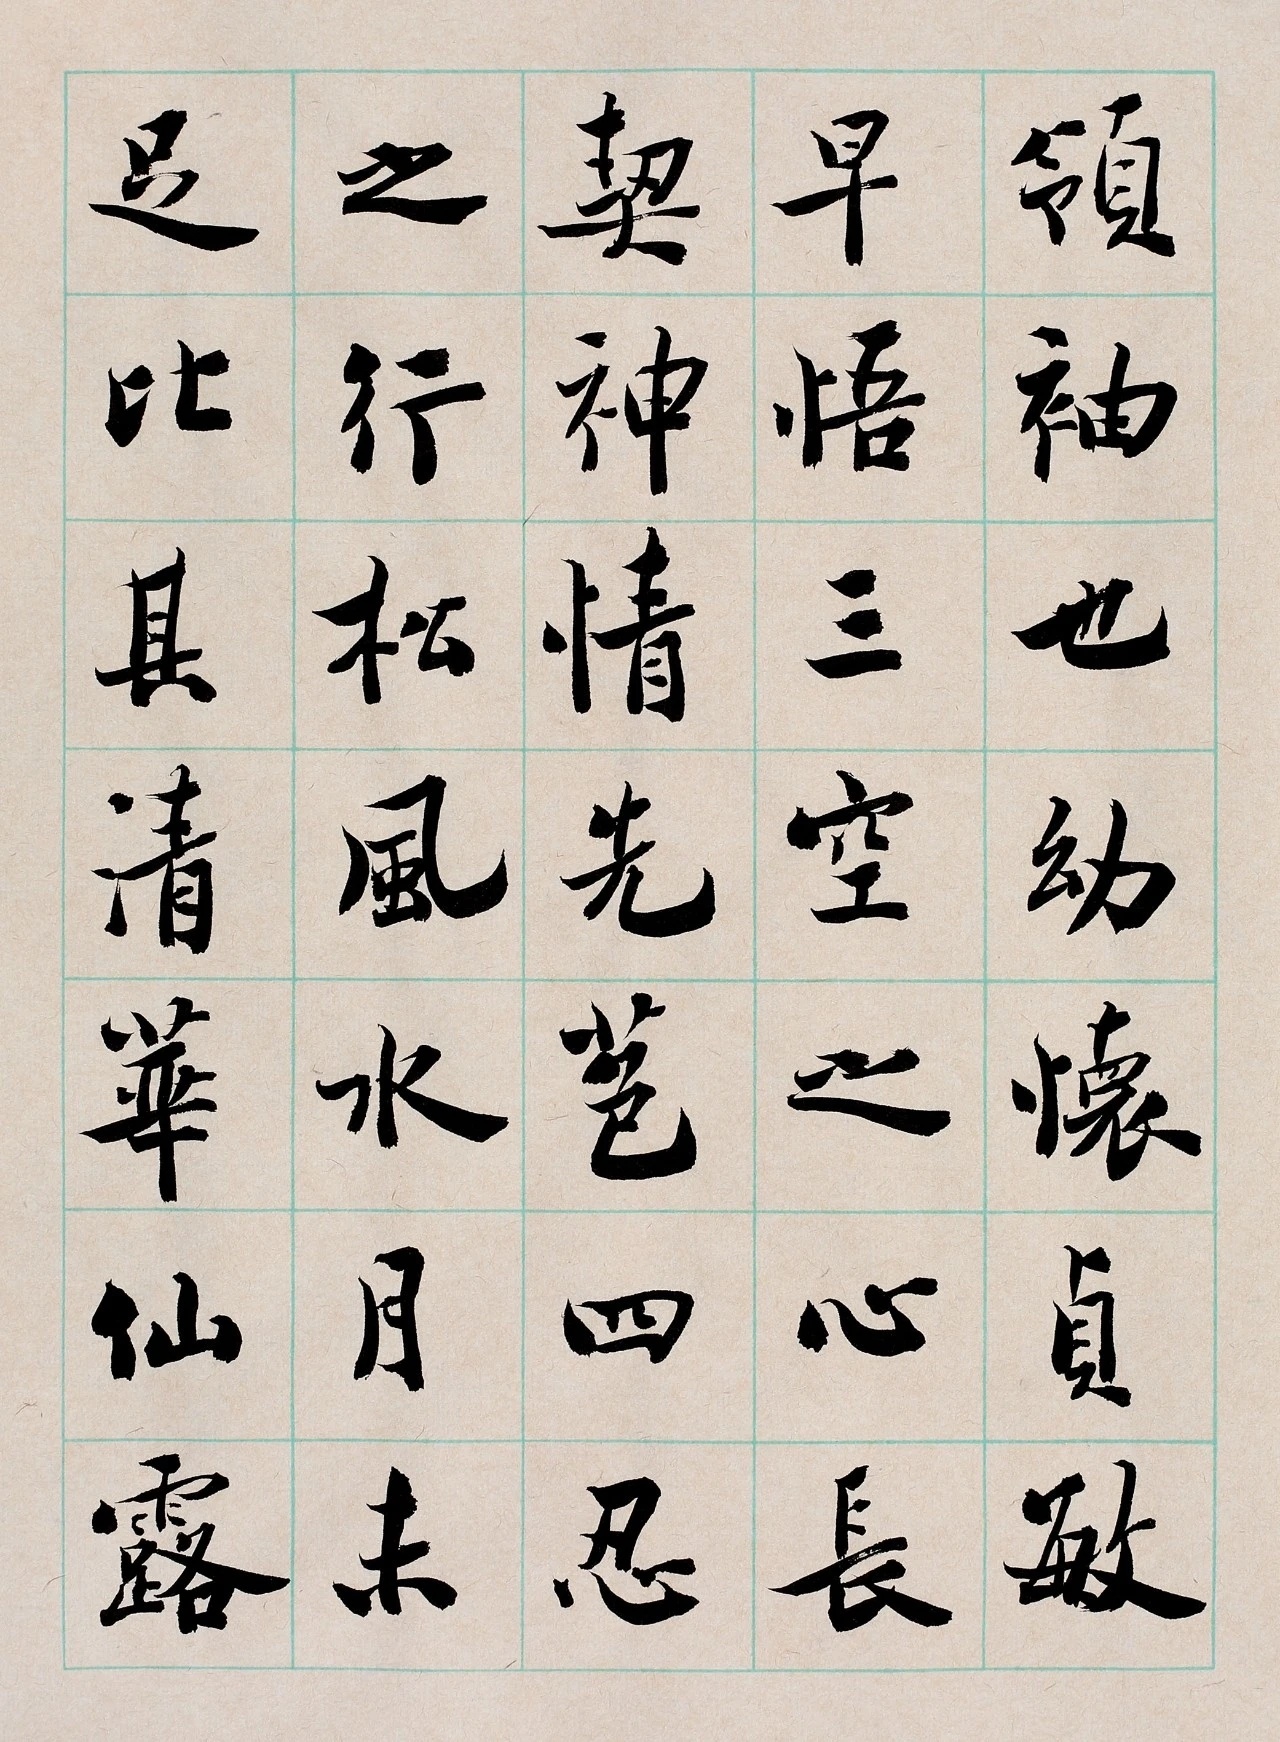 領袖也幼懷貞敏
早悟三空之心長
契神情先苞四忍
之行松風水月未
足比其清華仙露